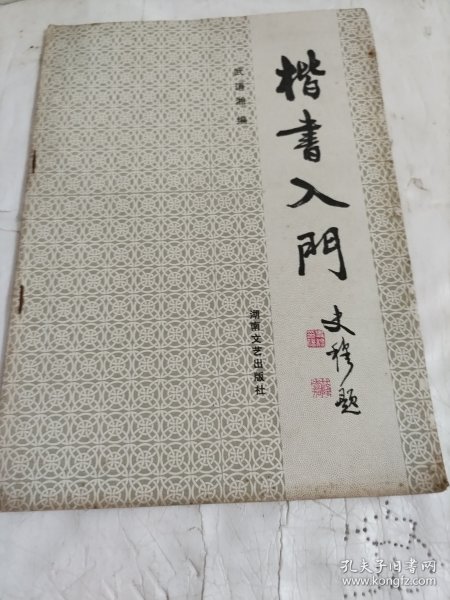 楷書入門
史穆题
武道湘 编
湖南文艺出版社
孔夫子旧书网
www.kongfz.com